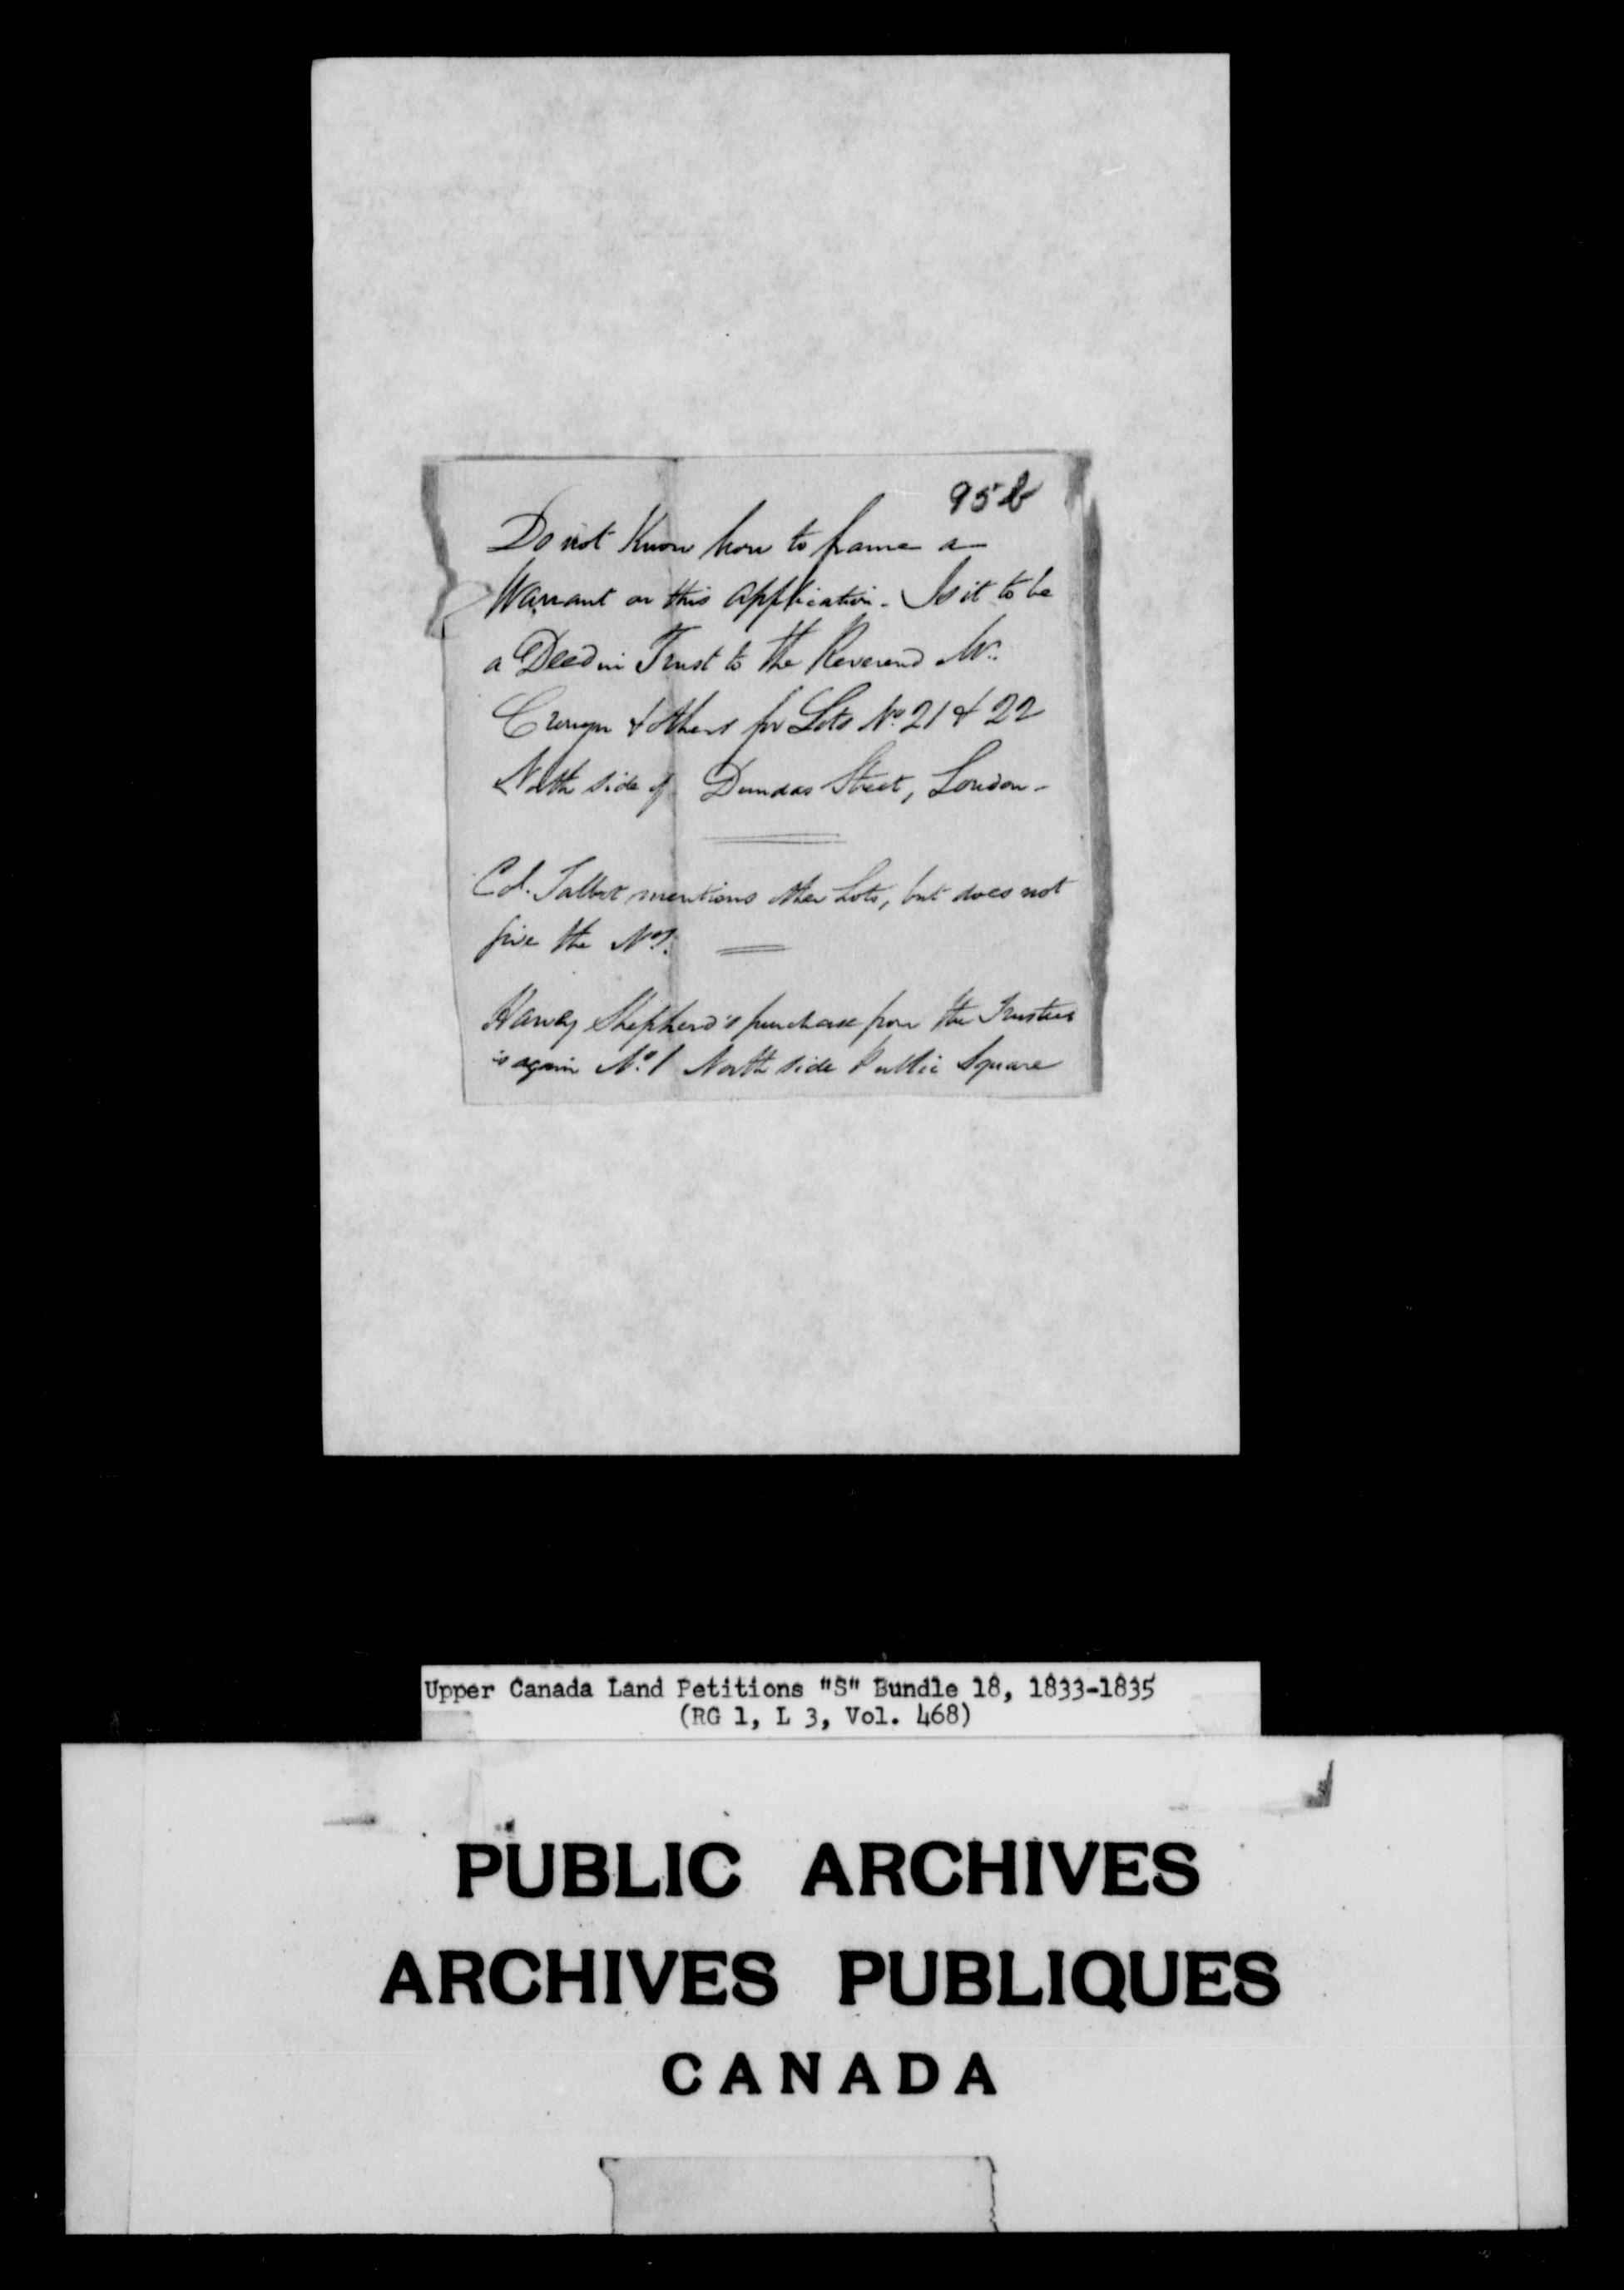 95b
Do not Know how to frame a
Warrant on this application. Is it to be
a Deed in Trust to the Reverend Mr.
Cronyn & others for Lots No. 21 & 22
North side of Dundas Street, London -
Col. Talbot mentions other Lots, but does not
give the Nos.
Harvey Shepherd's purchase from the Trustees
is again No. 1 North side Public Square
Upper Canada Land Petitions "S" Bundle 18, 1833-1835
(RG 1, L 3, Vol. 468)
PUBLIC ARCHIVES
ARCHIVES PUBLIQUES
CANADA